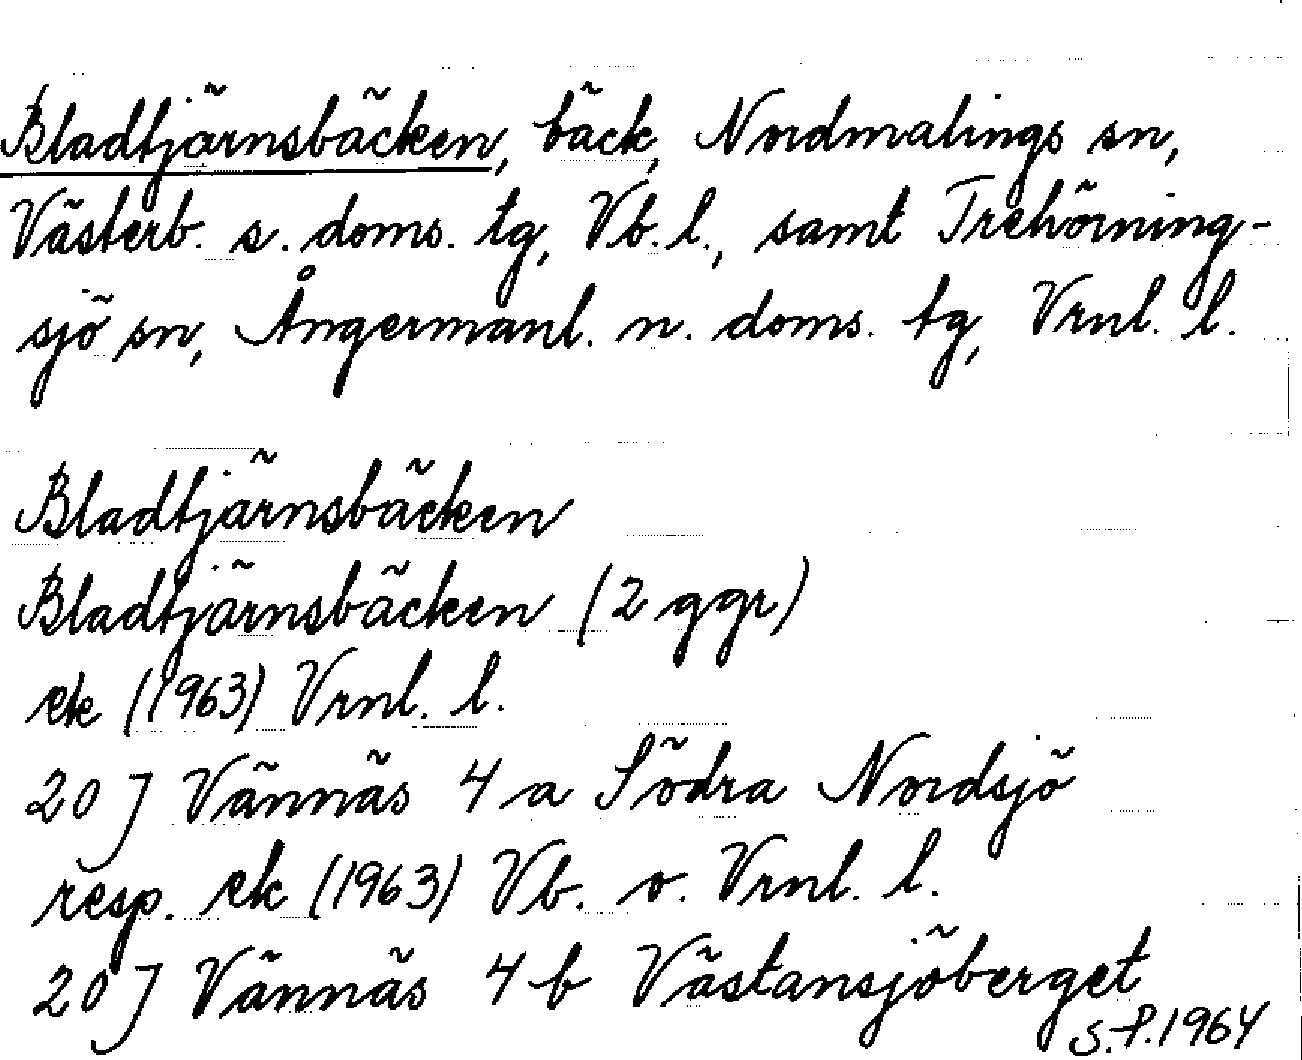 Bladtjärnsbäcken, bäck, Nordmalings sn,
Västerb. s. doms. tg, Vb. l., samt Trehörning-
sjö sn, Ångermanl. n. doms. tg, Vrnl. l.
Bladtjärnsbäcken
Bladtjärnsbäcken (2 ggr)
ek (1963) Vrnl. l.
20 J Vännäs 4 a Södra Nordsjö
resp. ek (1963) Vb. o. Vrnl. l.
20 J Vännäs 4 b Västansjöberget
S.P. 1964